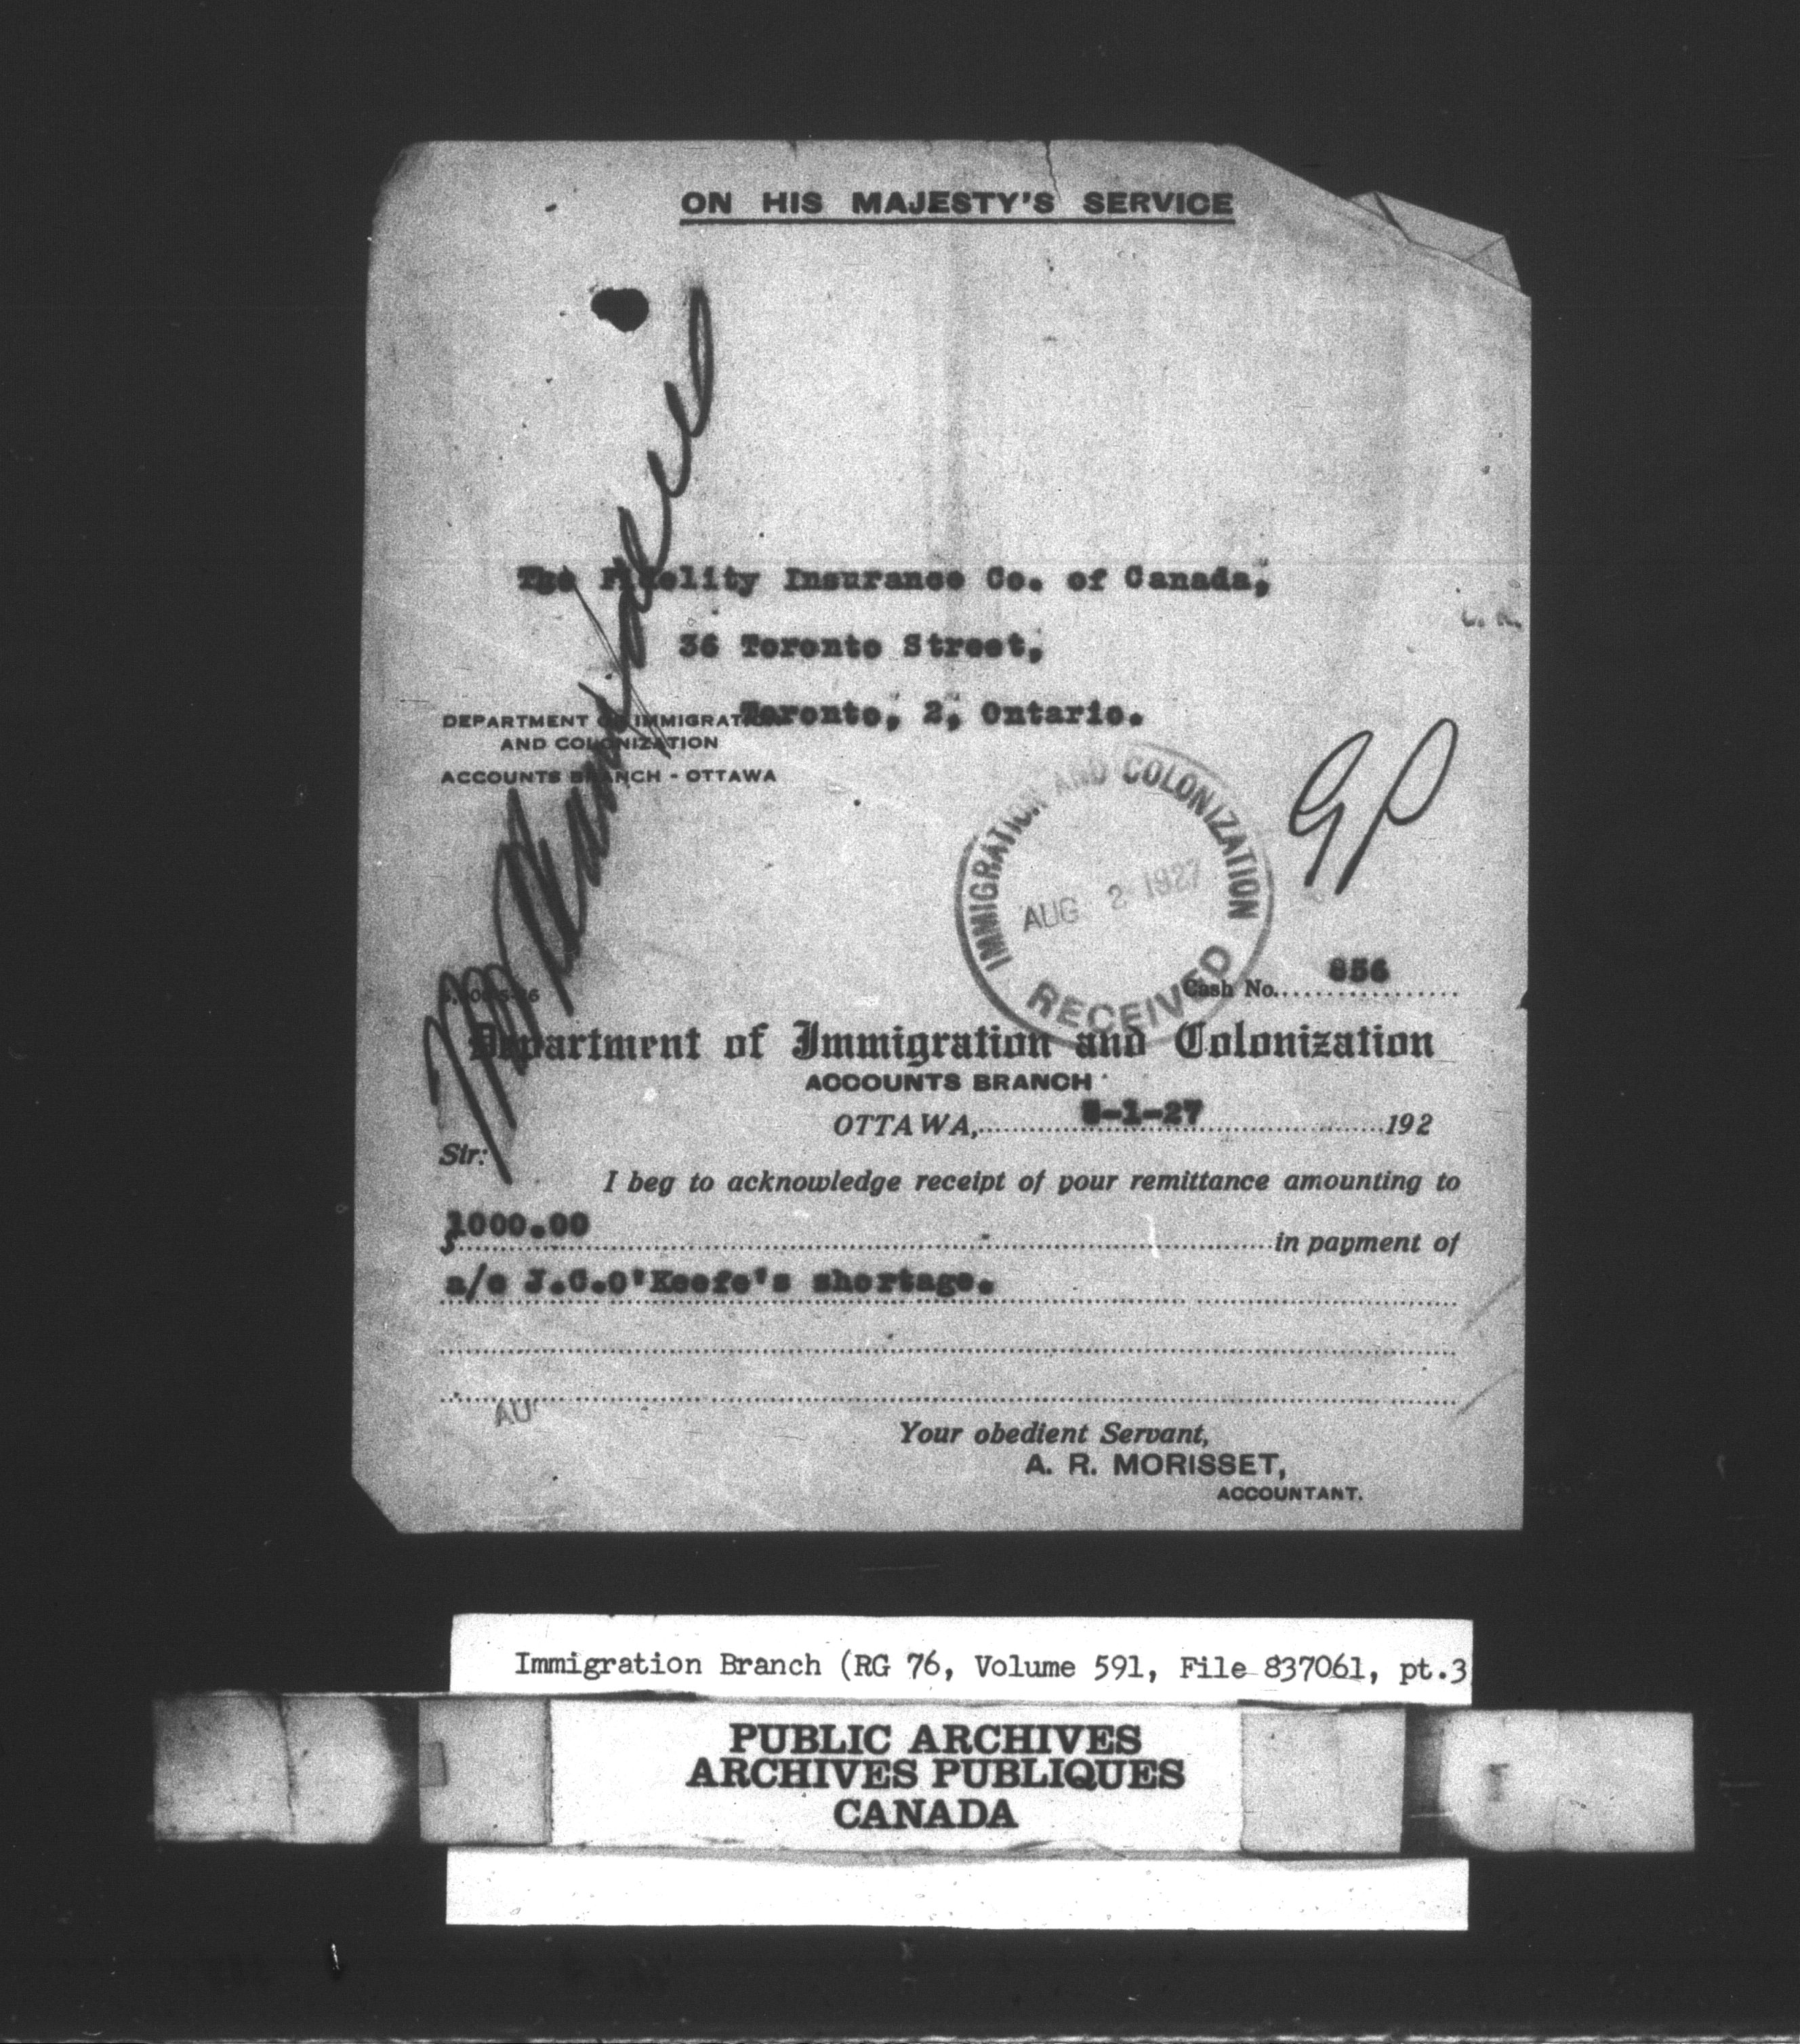 ON HIS MAJESTY'S SERVICE
The Fidelity Insurance Co. of Canada,
36 Toronto Street,
Toronto, 2, Ontario.
DEPARTMENT OF IMMIGRATION
AND COLONIZATION
ACCOUNTS BRANCH - OTTAWA
IMMIGRATION AND COLONIZATION
AUG 2 1927
RECEIVED
GP
Cash No. 856
Department of Immigration and Colonization
ACCOUNTS BRANCH
OTTAWA, 5-1-27 192
Sir:
I beg to acknowledge receipt of your remittance amounting to
$1000.00 in payment of
a/c J.C.O'Keefe's shortage.
AU
Your obedient Servant,
A. R. MORISSET,
ACCOUNTANT.
Immigration Branch (RG 76, Volume 591, File 837061, pt.3
PUBLIC ARCHIVES
ARCHIVES PUBLIQUES
CANADA